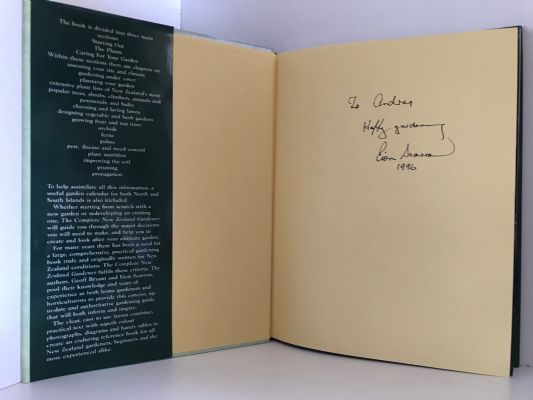 The book is divided into three main
sections:
Starting Out
The Plants
Caring For Your Garden
Within these sections there are chapters on:
assessing your site and climate
gardening under cover
planning your garden
extensive plant lists of New Zealand's most
popular trees, shrubs, climbers, annuals and
perennials, and bulbs
choosing and laying lawns
designing vegetable and herb gardens
growing fruit and nut trees
orchids
ferns
palms
pest, disease and weed control
plant nutrition
improving the soil
pruning
propagation
To help assimilate all this information, a
useful garden calendar for both North and
South Islands is also included.
Whether starting from scratch with a
new garden or redeveloping an existing
one, The Complete New Zealand Gardener
will guide you through the major decisions
you will need to make, and help you to
create and look after your ultimate garden.
For many years there has been a need for
a large, comprehensive, practical gardening
book truly and originally written for New
Zealand conditions. The Complete New
Zealand Gardener fulfils these criteria. The
authors, Geoff Bryant and Eion Scarrow,
pool their knowledge and years of
experience as both home gardeners and
horticulturists to provide this concise, up-
to-date and authoritative gardening guide
that will both inform and inspire.
The clear, easy to use layout combines
practical text with superb colour
photographs, diagrams and handy tables to
create an enduring reference book for all
New Zealand gardeners, beginners and the
more experienced alike.
To Andrea
Happy gardening
Eion Scarrow
1996